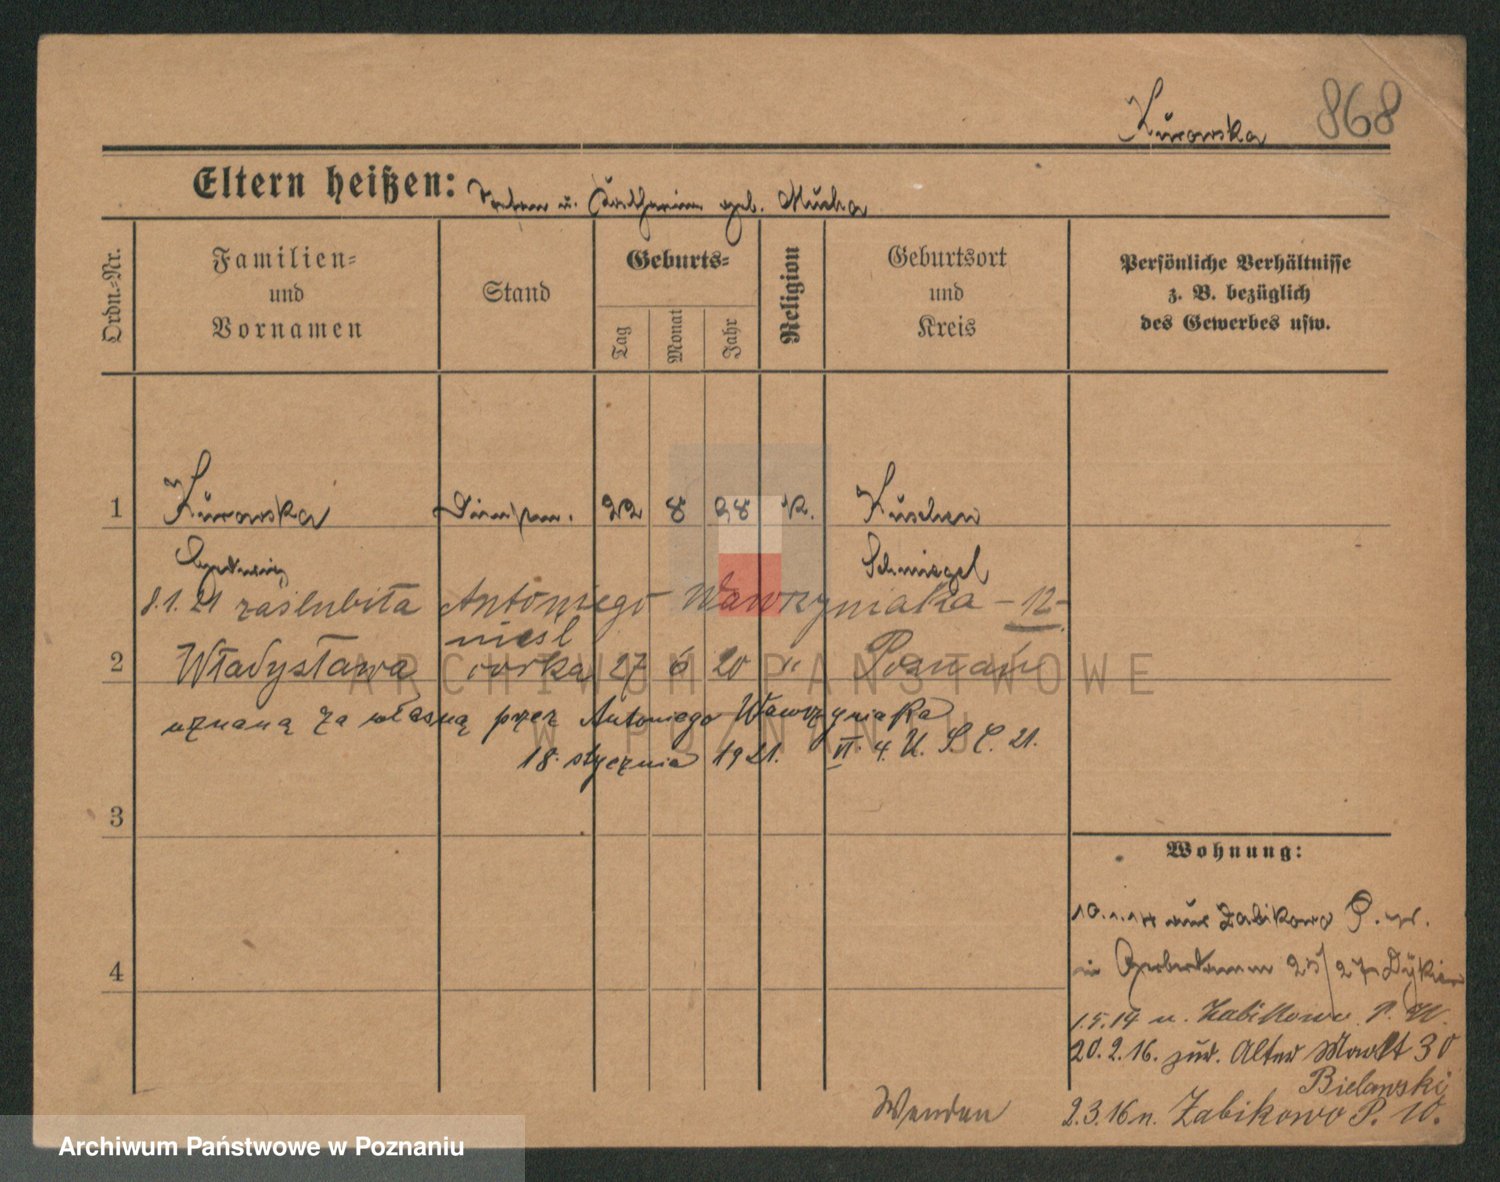 Kurowska 868
Eltern heißen: u. Katharina geb. Mucha
Ordn.-Nr.
Familien- und Vornamen
Stand
Geburts-
Tag
Monat
Jahr
Religion
Geburtsort und Kreis
Persönliche Verhältnisse z. B. bezüglich des Gewerbes usw.
1 Kurowska 22 8 98 k. Kuschen
Hedwig Schmiegel
8.1.21 zaślubiła Antoniego Wawrzyniaka – 12 –
nieśl
2 Władysława córka 27 6 20 " Poznań
uznaną za własną przez Antoniego Wawrzyniaka
18. stycznia 1921. VI. 4. U. S. C. 21.
3
4
Wohnung:
10.1.14 aus Zabikowo P. W.
in Gerberdamm 25/27
1.5.14 n. Zabikowo P. W.
20.2.16. zur. Alter Markt 30
Bielawski
Wenden 2.3.16 n. Zabikowo P. W.
ARCHIWUM PAŃSTWOWE
W POZNANIU
Archiwum Państwowe w Poznaniu